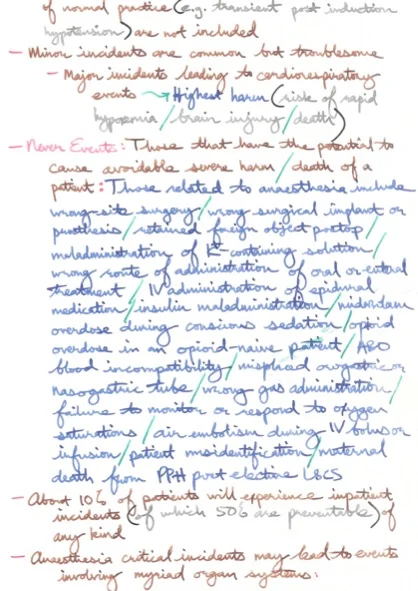 of normal practice (e.g. transient post induction
hypotension) are not included
- Minor incidents are common but troublesome
- Major incidents leading to cardiorespiratory
events → Highest harm (risk of rapid
hypoxemia / brain injury / death)
- Never Events: Those that have the potential to
cause avoidable severe harm / death of a
patient: Those related to anaesthesia include
wrong-site surgery / wrong surgical implant or
prosthesis / retained foreign object postop /
maladministration of K+-containing solution /
wrong route of administration of oral or enteral
treatment / IV administration of epidural
medication / insulin maladministration / midazolam
overdose during conscious sedation / opioid
overdose in an opioid-naive patient / ABO
blood incompatibility / misplaced orogastric or
nasogastric tube / wrong gas administration /
failure to monitor or respond to oxygen
saturations / air embolism during IV bolus or
infusion / patient misidentification / maternal
death from PPH post elective LSCS
- About 10% of patients will experience inpatient
incidents (of which 50% are preventable) of
any kind
- Anaesthesia critical incidents may lead to events
involving myriad organ systems: